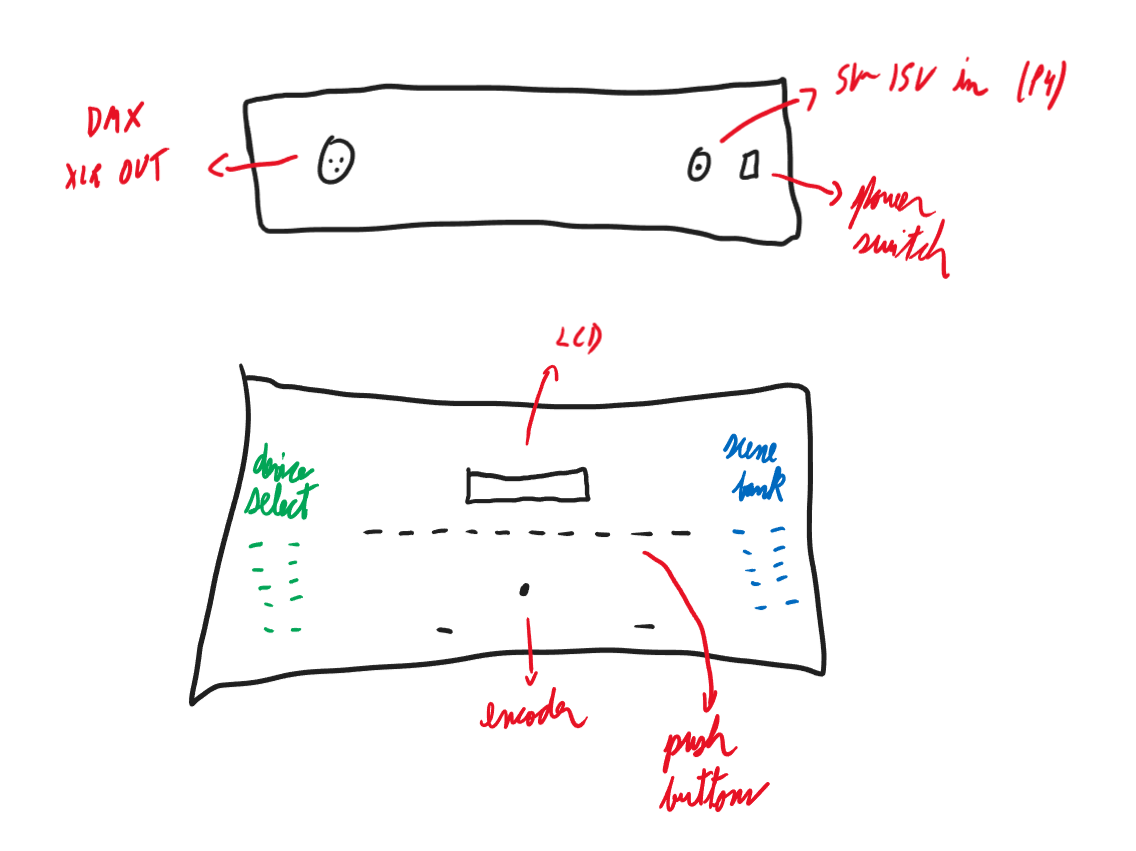 DMX
XLR OUT
5V~15V in (P4)
power
switch
LCD
device
select
scene
bank
encoder
push
buttons